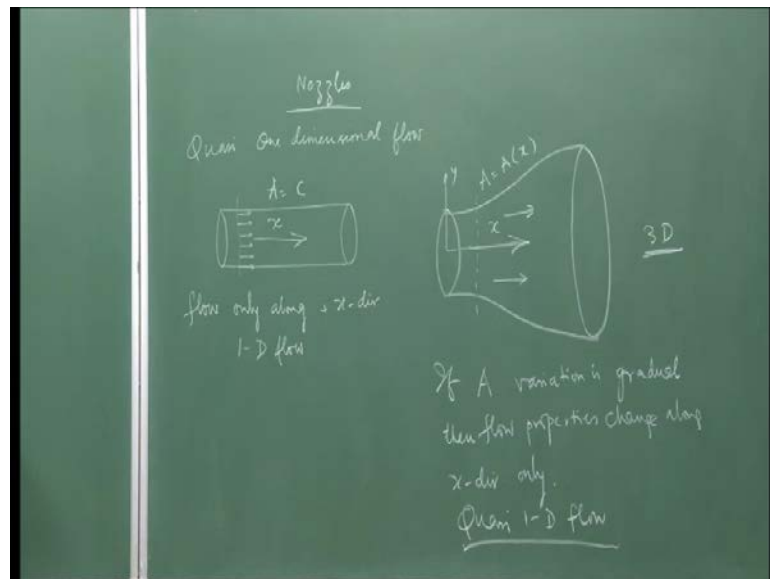 Nozzles
Quasi One dimensional flow
A = C
x
flow only along x-dir
1-D flow
y
A = A(x)
x
3D
If A variation is gradual
then flow properties change along
x-dir only.
Quasi 1-D flow